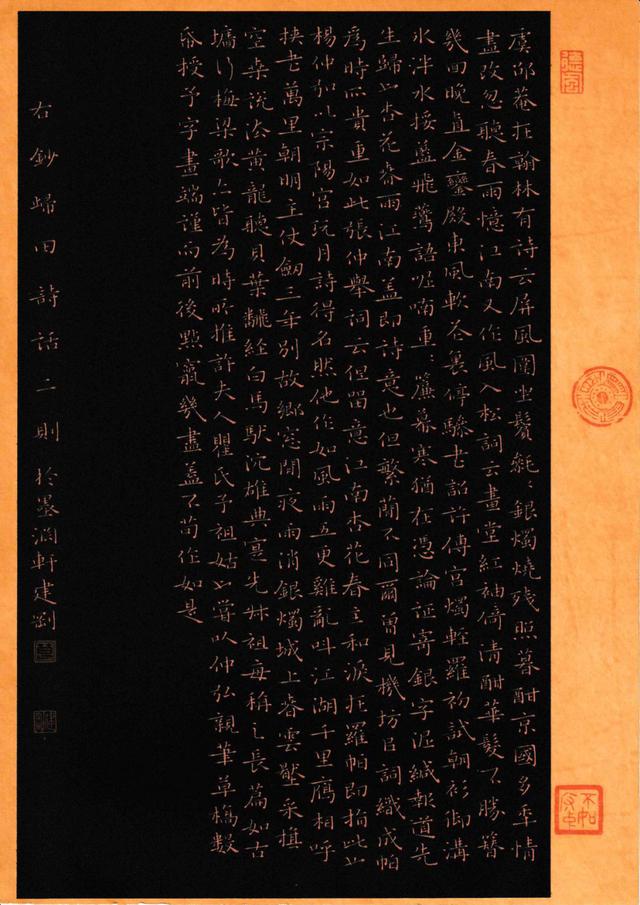 虞邵菴在翰林有詩云屏風圍坐鬢毿〻銀燭燒殘照暮酣京國多年情
盡改忽聽春雨憶江南又作風入松詞云畫堂紅袖倚清酣華髮不勝簪
幾回晚直金鑾殿東風軟花裏停驂書詔許傳宮燭輕羅初試朝衫御溝
冰泮水挼藍飛燕語呢喃重〻簾幕寒猶在憑誰寄銀字泥緘報道先
生歸也杏花春雨江南蓋即詩意也但繁簡不同爾曾見機坊以詞織成帕
為時所貴重如此張仲舉詞云但留意江南杏花春雨和淚在羅帕即指此也
楊仲弘以宗陽宮玩月詩得名然他作如風雨五更雞亂叫江湖千里鴈相呼
挾書萬里朝明主仗劍三年別故鄉窓閒夜雨消銀燭城上春雲壓采旗
空桑說法黃龍聽貝葉翻經白馬馱沉雄典實先叔祖每稱之長篇如古
墻行梅梁歌亦皆為時所推許夫人瞿氏予祖姑也嘗以仲弘親筆草稿數
番授予字畫端謹而前後點竄幾盡蓋不苟作如是
右鈔歸田詩話二則於墨淵軒建劉
不如